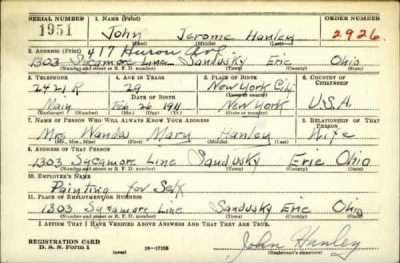 SERIAL NUMBER 1. NAME (Print) ORDER NUMBER
1951 John Jerome Hanley 2926
(First) (Middle) (Last)
2. ADDRESS (Print) 417 Huron Ave.
1303 Sycamore Line Sandusky Erie Ohio
(Number and street or R. F. D. number) (Town) (County) (State)
3. TELEPHONE 4. AGE IN YEARS 5. PLACE OF BIRTH 6. COUNTRY OF CITIZENSHIP
2421 R 29 New York City
DATE OF BIRTH (Town or county)
Main Feb 26 1911 New York U.S.A.
(Exchange) (Number) (Mo.) (Day) (Yr.) (State or country)
7. NAME OF PERSON WHO WILL ALWAYS KNOW YOUR ADDRESS 8. RELATIONSHIP OF THAT PERSON
Mrs. Wanda Mary Hanley Wife
(Mr., Mrs., Miss) (First) (Middle) (Last)
9. ADDRESS OF THAT PERSON
1303 Sycamore Line Sandusky Erie Ohio
(Number and street or R. F. D. number) (Town) (County) (State)
10. EMPLOYER'S NAME
Painting for Self
11. PLACE OF EMPLOYMENT OR BUSINESS
1303 Sycamore Line Sandusky Erie Ohio
(Number and street or R. F. D. number) (Town) (County) (State)
I AFFIRM THAT I HAVE VERIFIED ABOVE ANSWERS AND THAT THEY ARE TRUE.
REGISTRATION CARD John Hanley
D. S. S. Form 1 (over) (Registrant's signature)